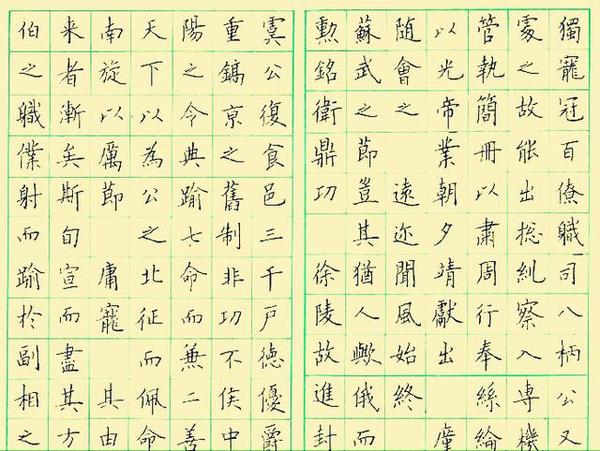 獨寵冠百僚職司八柄公又
處之故能出揔糺察入專機
管執簡冊以肅周行奉絲綸
以光帝業朝夕靖獻出
随會之 遠迩聞風始終
蘇武之節豈其猶人歟俄而
勲銘衛鼎功 徐陵故進封
虞公復食邑三千戸徳優爵
重鎬京之舊制非功不侯中
陽之令典踰七命而兼二善
天下以為公之北征而佩命
南旋以厲節 庸寵 其由
来者漸矣斯旬宣而盡其方
伯之職僕射而踰於副相之